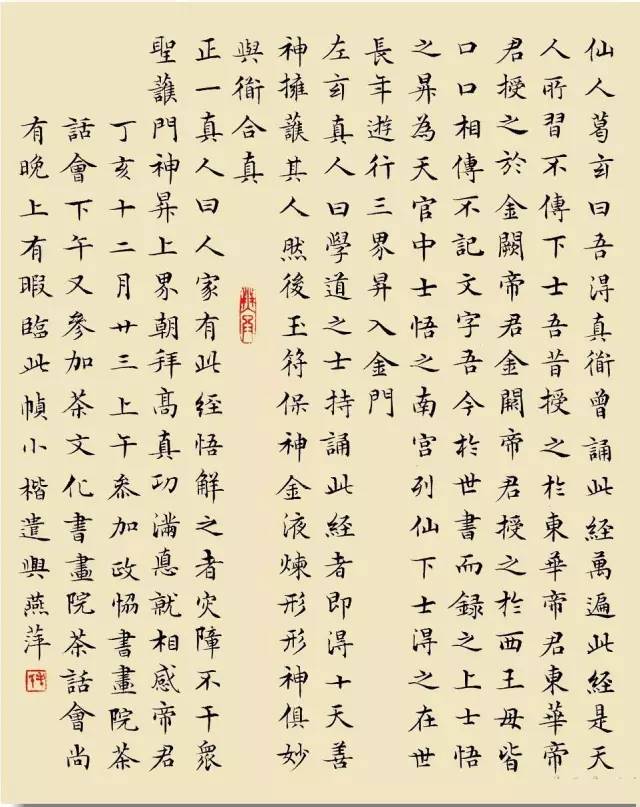 仙人葛玄曰吾得真衜曾誦此經萬遍此經是天
人所習不傳下士吾昔授之於東華帝君東華帝
君授之於金闕帝君金闕帝君授之於西王母皆
口口相傳不記文字吾今於世書而録之上士悟
之昇為天官中士悟之南宮列仙下士得之在世
長年遊行三界昇入金門
左玄真人曰學道之士持誦此經者即得十天善
神擁護其人然後玉符保神金液煉形形神俱妙
與衜合真
正一真人曰人家有此經悟解之者灾障不干衆
聖護門神昇上界朝拜髙真功滿悳就相感帝君
丁亥十二月廿三上午叅加政協書畫院茶
話會下午又參加茶文化書畫院茶話會尚
有晚上有暇臨此幀小楷遣興燕萍